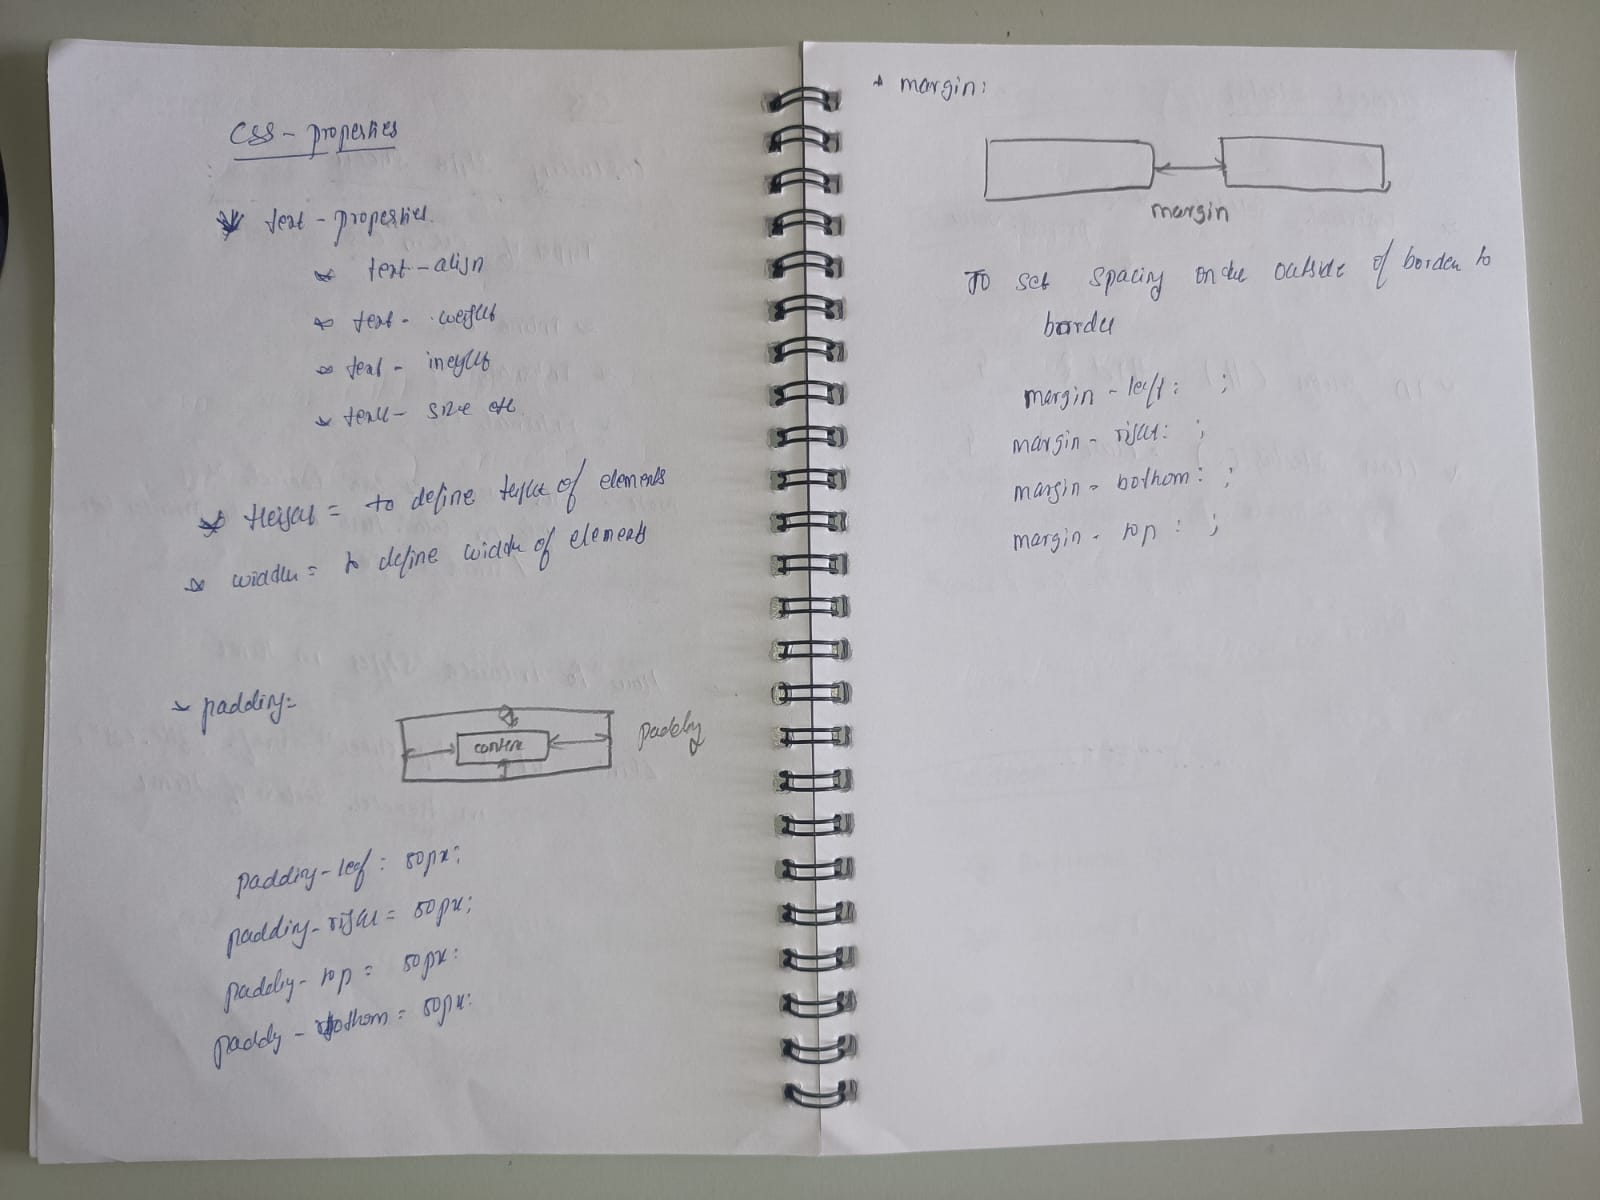 CSS - properties
* text - properties.
* text - align
* text - weight
* text -
* text - size etc
* Height = to define height of elements
* width = to define width of elements
* padding =
content
padding
padding - left : 50px;
padding - right = 50px;
padding - top = 50px:
padding - bothom = 50px:
* margin:
margin
To set spacing on the outside of border to
border
margin - left : ;
margin - right: ;
margin - bothom : ;
margin - top : ;